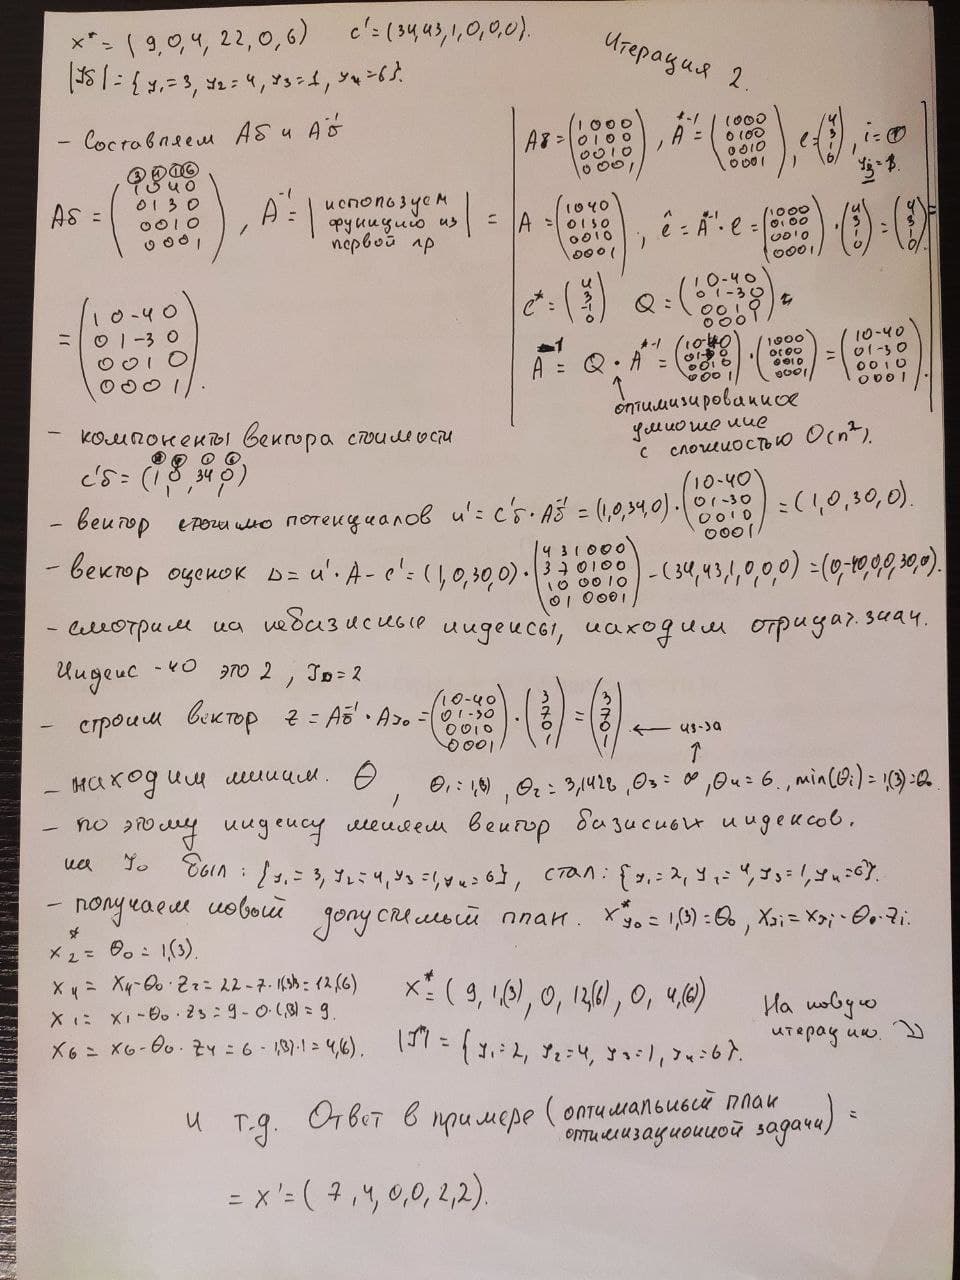 x* = (9,0,4,22,0,6) c' = (34,43,1,0,0,0).
Итерация 2.
|Jб| = {J₁=3, J₂=4, J₃=1, J₄=6}.
- Составляем Aб и Aб⁻¹
③ ④ ① ⑥
Aб = (1 0 4 0
0 1 3 0
0 0 1 0
0 0 0 1), A⁻¹ = | используем
функцию из
первой лр | =
= (1 0 -4 0
0 1 -3 0
0 0 1 0
0 0 0 1).
Aб = (1 0 0 0
0 1 0 0
0 0 1 0
0 0 0 1), A*⁻¹ = (1000
0100
0010
0001), ℓ = (4
3
1
0), i =
A = (1040
0130
0010
0001), ℓ̂ = A*⁻¹ · ℓ = (1000
0100
0010
0001) · (4
3
1
0) = (4
3
1
0) =
ℓ* = (4
3
-1
0) Q = (1 0 -4 0
0 1 -3 0
0 0 1 0
0 0 0 1)
A⁻¹ = Q · A*⁻¹ = (10-40
01-30
0010
0001) · (1000
0100
0010
0001) = (10-40
01-30
0010
0001).
оптимизированное
умножение
с сложностью O(n²).
- компоненты вектора стоимости
c'б = (1, 0, 34, 0)
- вектор потенциалов u' = c'б · Aб⁻¹ = (1,0,34,0) · (10-40
01-30
0010
0001) = (1,0,30,0).
- вектор оценок Δ = u' · A - c' = (1,0,30,0) · (4 3 1 0 0 0
3 7 0 1 0 0
1 0 0 0 1 0
0 1 0 0 0 1) - (34,43,1,0,0,0) = (0,-40,0,0,30,0).
- смотрим на небазисные индексы, находим отрицат. знач.
Индекс -40 это 2, J₀ = 2
- строим вектор z = Aб⁻¹ · AJ₀ = (10-40
01-30
0010
0001) · (3
7
0
1) = (3
7
0
1) ← из-за
- находим миним. Θ, Θ₁ = 1,(3), Θ₂ = 3,1428, Θ₃ = ∞, Θ₄ = 6., min(Θi) = 1,(3) = Θ₀
- по этому индексу меняем вектор базисных индексов.
на J₀ Был: {J₁=3, J₂=4, J₃=1, J₄=6}, стал: {J₁=2, J₂=4, J₃=1, J₄=6}.
- получаем новый допустимый план. x*J₀ = 1,(3) = Θ₀, xJi = xJi - Θ₀·zi.
x₂* = Θ₀ = 1,(3).
x₄ = x₄ - Θ₀ · z₂ = 22 - 7 · 1,(3) = 12,(6)
x₁ = x₁ - Θ₀ · z₃ = 9 - 0·1,(3) = 9.
x₆ = x₆ - Θ₀ · z₄ = 6 - 1,(3)·1 = 4,(6).
x* = (9, 1,(3), 0, 12,(6), 0, 4,(6))
|J*| = {J₁=2, J₂=4, J₃=1, J₄=6}.
На новую
итерацию.
и т.д. Ответ в примере (оптимальный план
оптимизационной задачи) =
= x' = (7,4,0,0,2,2).